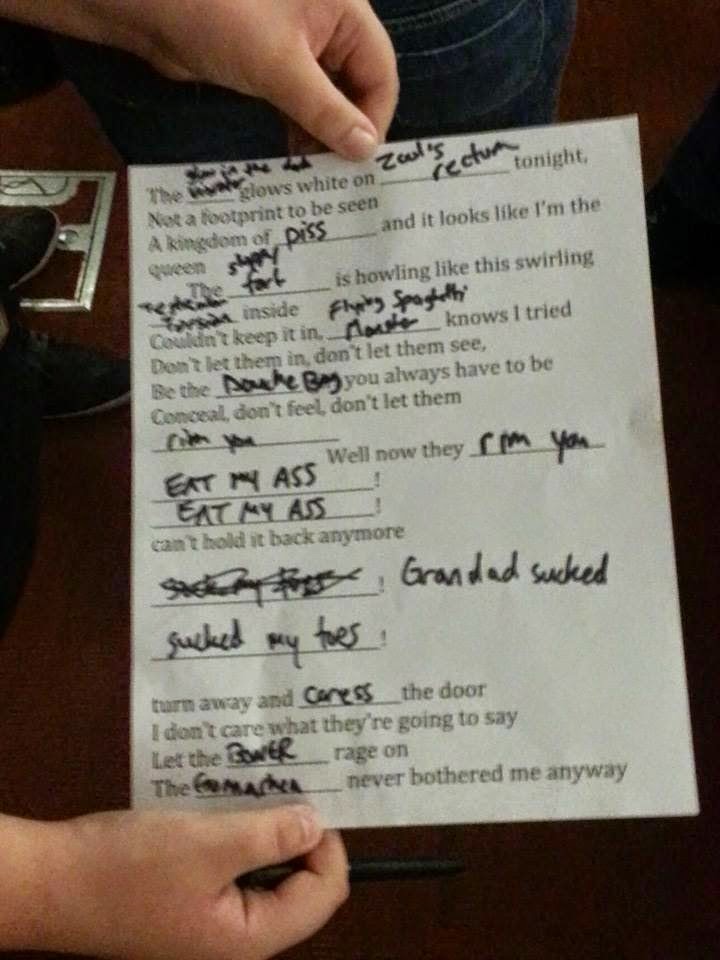 glow in the dark Zaul's rectum
The glows white on tonight,
Not a footprint to be seen
A kingdom of piss and it looks like I'm the
queen
The fart is howling like this swirling
inside Flying Spaghetti
Couldn't keep it in, Monster knows I tried
Don't let them in, don't let them see,
Be the Douche Bag you always have to be
Conceal, don't feel, don't let them
rim you
Well now they rim you
EAT MY ASS !
EAT MY ASS !
can't hold it back anymore
! Grandad sucked
sucked my toes !
turn away and caress the door
I don't care what they're going to say
Let the BONER rage on
The never bothered me anyway